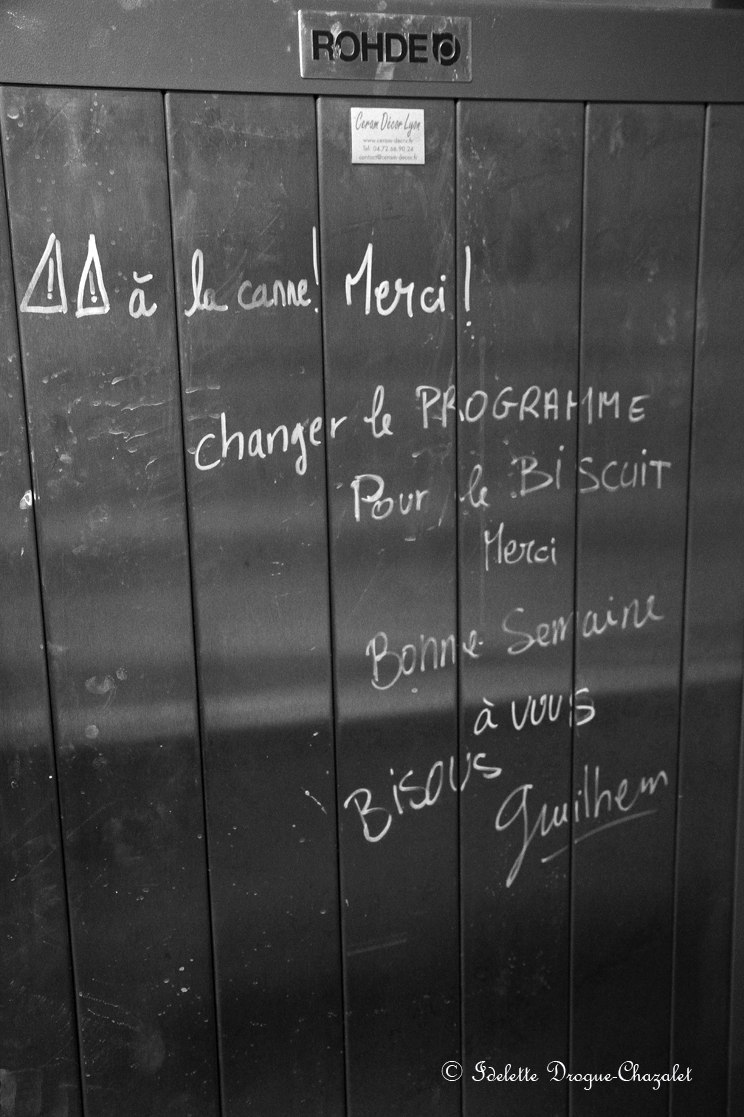 ROHDE
Ceram Décor Lyon
www.ceram-decor.fr
Tel: 04.72.66.90.24
contact@ceram-decor.fr
⚠⚠ à la canne! Merci!
changer le PROGRAMME
Pour le BISCUIT
Merci
Bonne Semaine
à vous
Bisous
Guilhem
© Idelette Drogue-Chazalet